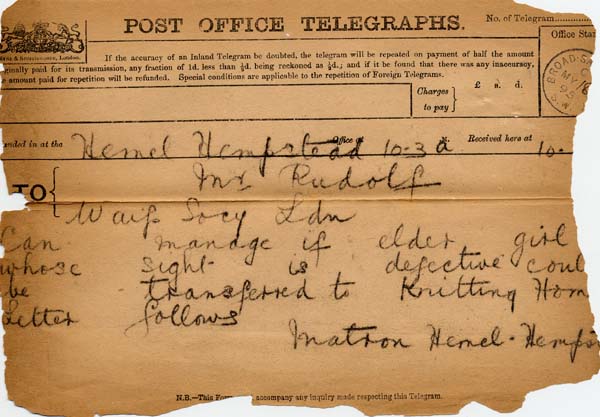 POST OFFICE TELEGRAPHS.
No. of Telegram
London.
If the accuracy of an Inland Telegram be doubted, the telegram will be repeated on payment of half the amount
ginally paid for its transmission, any fraction of 1d. less than ½d. being reckoned as ½d.; and if it be found that there was any inaccuracy,
e amount paid for repetition will be refunded. Special conditions are applicable to the repetition of Foreign Telegrams.
Office Sta
BROAD S
MY
95
S.W
Charges to pay } £ s. d.
nded in at the Hemel Hempstead Office at 10.3 a M. Received here at 10.
TO { Mr Rudolf
Waifs Socy Ldn
Can manage if elder girl
whose sight is defective coul
be transferred to Knitting Hom
Letter follows
Matron Hemel-Hemps
N.B.—This For accompany any inquiry made respecting this Telegram.